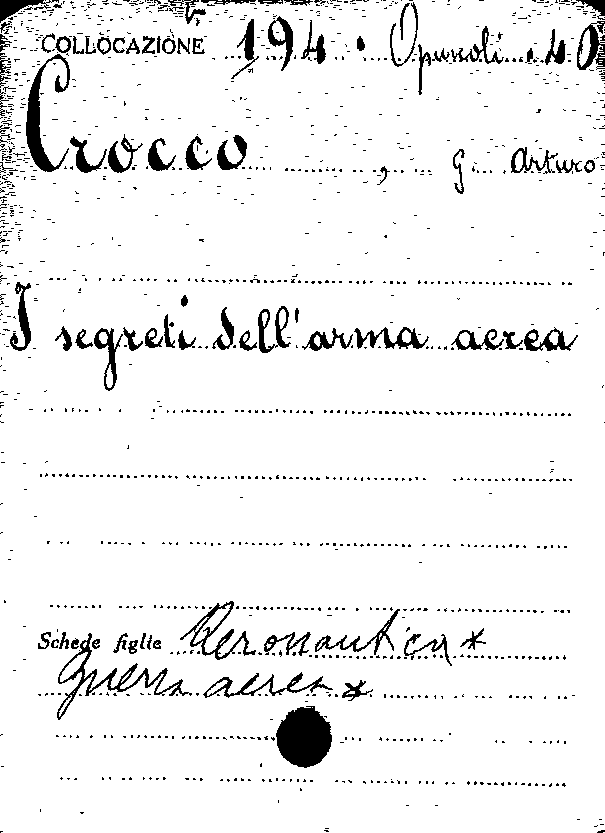 COLLOCAZIONE 194 · Opuscoli · 40
Crocco, G. Arturo
I segreti dell'arma aerea
Schede figlie Aeronautica *
Guerra aerea *